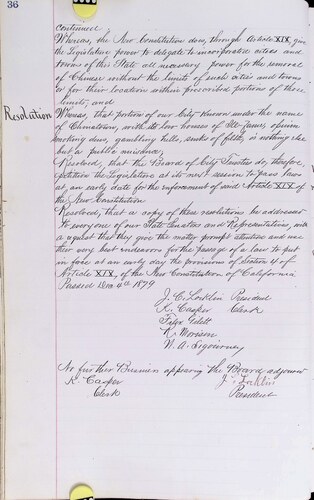 36
continued
Whereas, the New Constitution does, through Article XIX, give
the Legislature power to delegate to incorporated cities and
towns of this State all necessary power for the removal
of Chinese without the limits of such cities and towns
or for their location within prescribed portions of those
limits; and
Resolution
that portion of our City known under the name
of Chinatown, with its low houses of Ill-fame, opium
smoking dens, gambling hells, sinks of filth, is nothing else
but a public nuisance,
Resolved, that the Board of City Trustees do, therefore,
petition the Legislature at its next session to pass laws
at an early date for the enforcement of said Article XIX of
the New Constitution
Resolved, that a copy of these resolutions be addressed
to everyone of our State Senators and Representatives, with
a request that they give the matter prompt attention and use
their very best endeavors for the passage of a law to put
in force at an early day the provisions of Section 4 of
Article XIX, of the New Constitution of California
Passed 4th 1879
President
K. Casper Clerk
K. Morrison
W. A. Sigourney
No further Business appearing the Board adjourned
K. Casper
Clerk
President